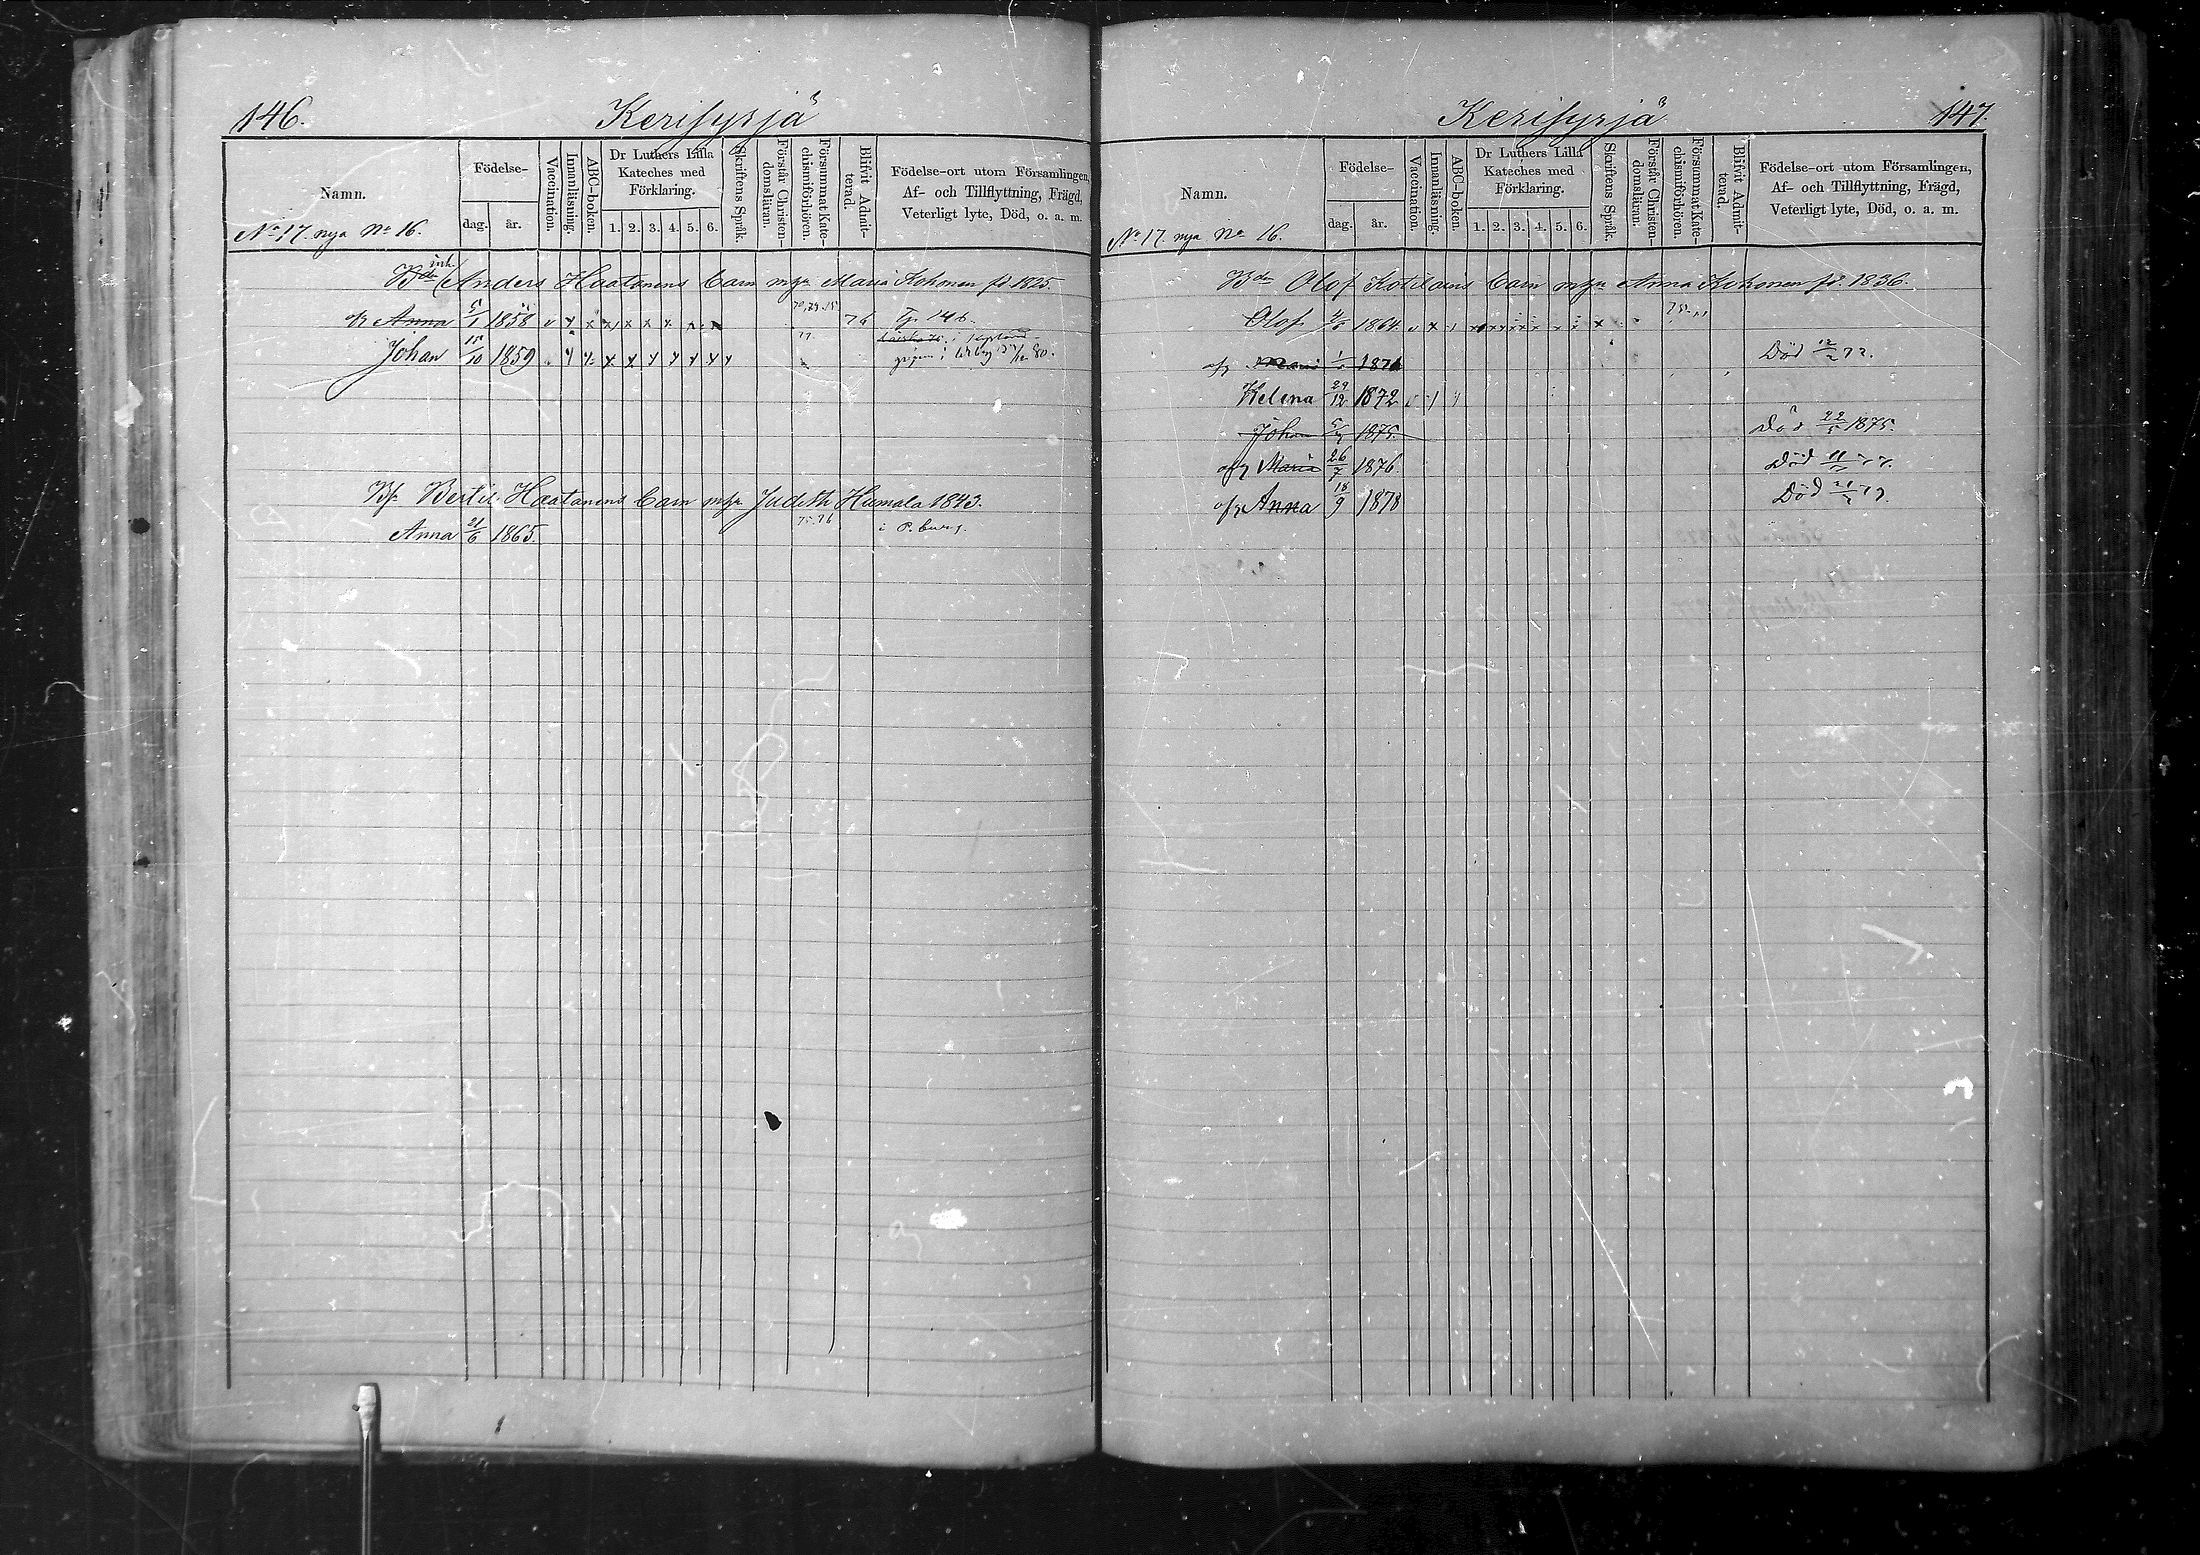 146.
Kerisyrjä
Namn.
Födelse-
dag.
år.
Vaccination.
Innanläsning.
ABC-boken.
Dr Luthers Lilla
Kateches med
Förklaring.
1. 2. 3. 4. 5. 6.
Skriftens Språk.
Förstår Christen-
domsläran.
Försummat Kate-
chismiförhören.
Blifvit Admit-
terad.
Födelse-ort utom Församlingen,
Af- och Tillflyttning, Frägd,
Veterligt lyte, Död, o. a. m.
No 17. nya No 16.
Bdn inh. Anders Haatanens barn m hu Maria Kohonen fd 1825.
Anna 5/1 1858 76
Johan 15/10 1859 77
80.
Bertil Haatanens barn m hu Judith Humala 1843.
Anna 21/6 1865. 75.76 i P.burg.
Kerisyrjä
147.
Namn.
Födelse-
dag.
år.
Vaccination.
Innanläsning.
ABC-boken.
Dr Luthers Lilla
Kateches med
Förklaring.
1. 2. 3. 4. 5. 6.
Skriftens Språk.
Förstår Christen-
domsläran.
Försummat Kate-
chismiförhören.
Blifvit Admit-
terad.
Födelse-ort utom Församlingen,
Af- och Tillflyttning, Frägd,
Veterligt lyte, Död, o. a. m.
No 17. nya No 16.
Bdn Olof Kotilains barn m hu Anna Kohonen fd. 1836.
Olof 1864
Maria 1871 Död
Helena 29/12 1872
Johan 1875. Död 22/5 1875.
Maria 26/7 1876. Död 77.
Anna 18/9 1878 Död 79.